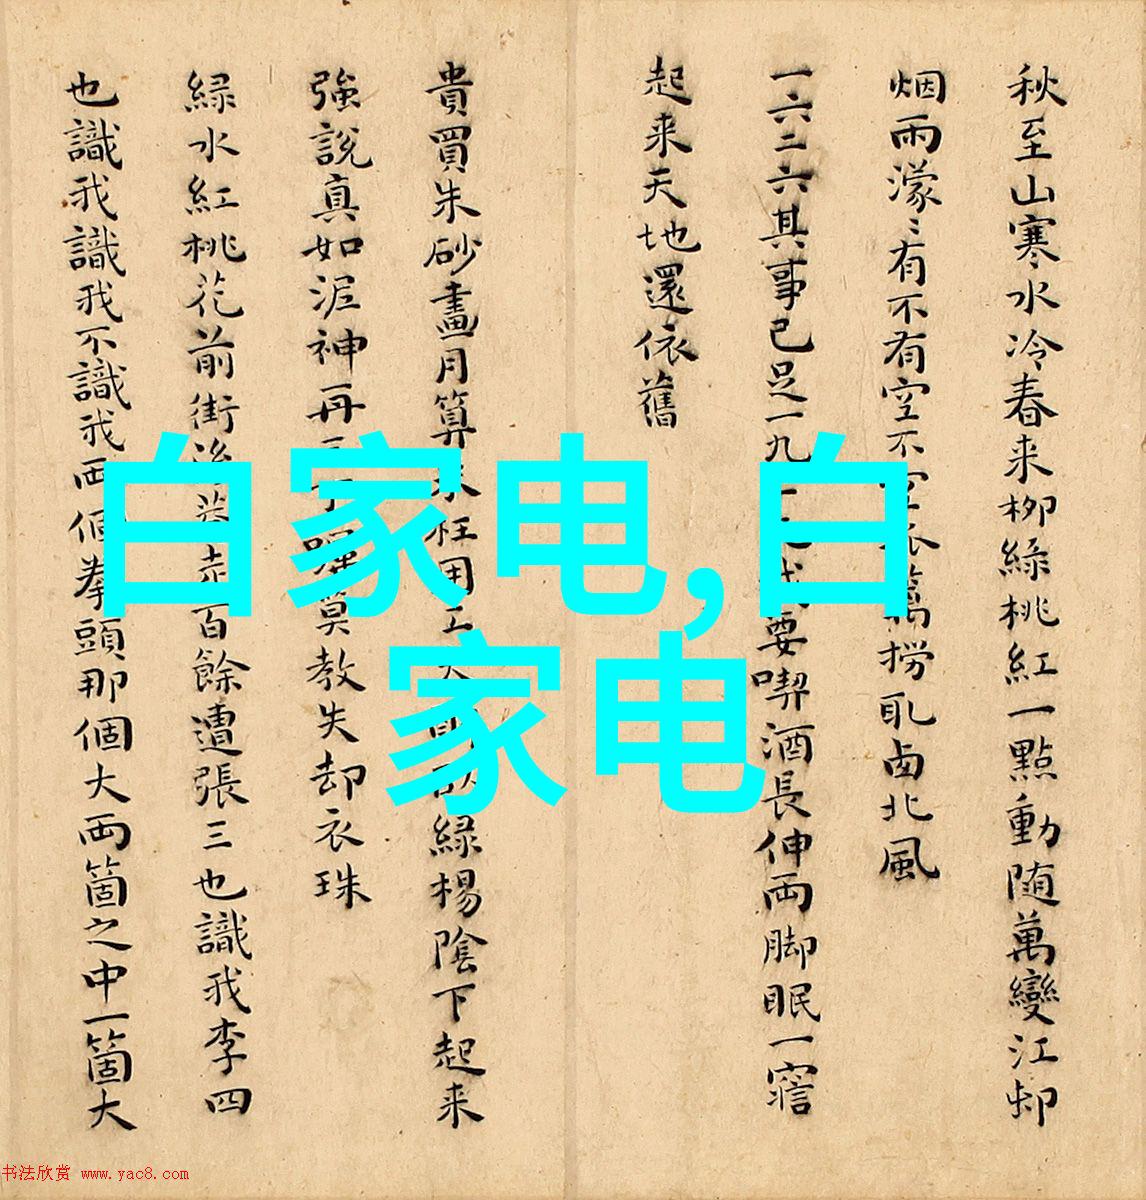 秋至山寒水冷春来柳緑桃紅一點動随萬變江邨
烟雨濛〻有不有空不空籬撈取西北風
一六二六其事已足一九要喫酒長伸両脚眠一寤
起来天地還依舊
貴買朱砂畫月算来枉用工緑楊陰下起来
強説真如泥神再三莫教失却衣珠
緑水紅桃花前街後巷走百餘遭張三也識我李四
也識我識我不識我両個拳頭那個大両箇之中一箇大
白家电,白
家电
书法欣赏 www.yac8.com